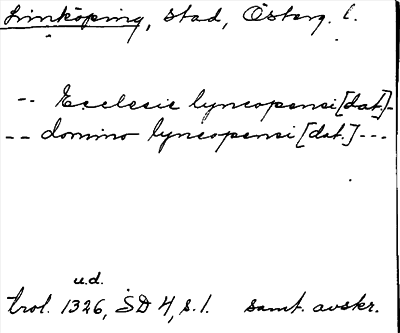 Linköping, stad, Österg. l.
-- Ecclesie lyncopensi [dat.]-
-- domino lyncopensi [dat.]---
u.d.
trol. 1326, SD 4, s. 1. samt. avskr.